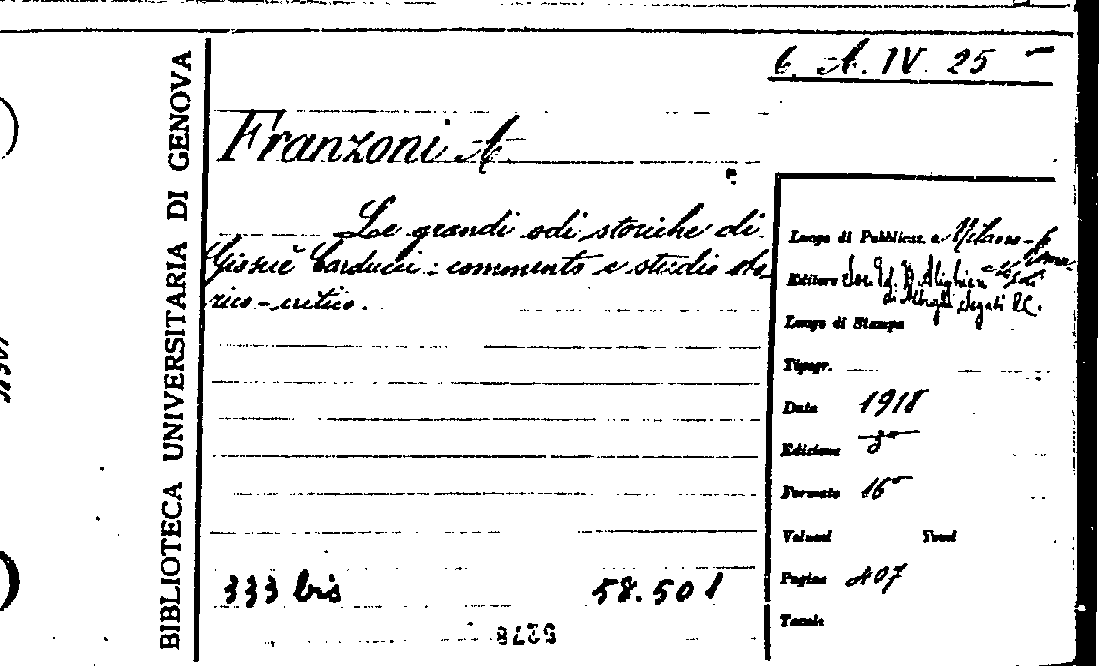 6. A. IV. 25
BIBLIOTECA UNIVERSITARIA DI GENOVA
Franzoni A.
Le grandi odi storiche di
Giosuè Carducci: commento e studio sto
rico-critico.
333 bis 58.501
Luogo di Pubblicaz. Milano-Roma
Editore Soc. Ed. D. Alighieri
di Albrighi Segati &C.
Luogo di Stampa
Tipogr.
Data 1918
Edizione
Formato 16°
Volumi Tomi
Pagine 407
Tavole